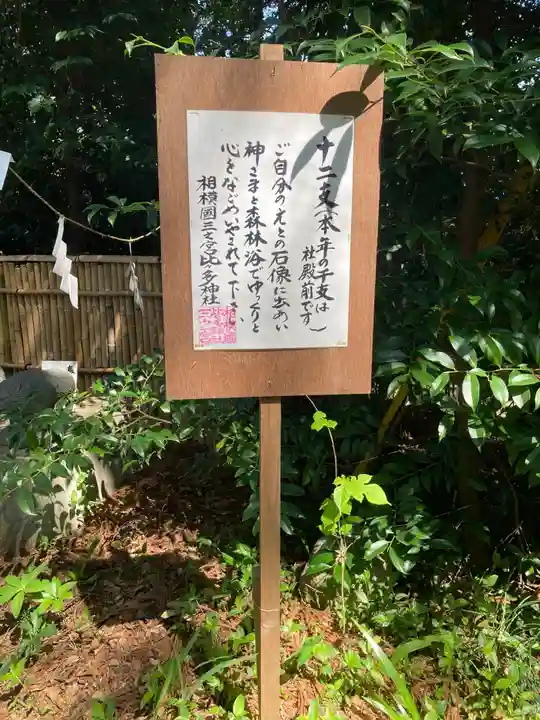 十二支(本年の干支は
社殿前です)
ご自分のえとの石像に出あい
神さまと森林浴でゆっくりと
心をなごめ
されて下さい
相模國三之宮比々多神社